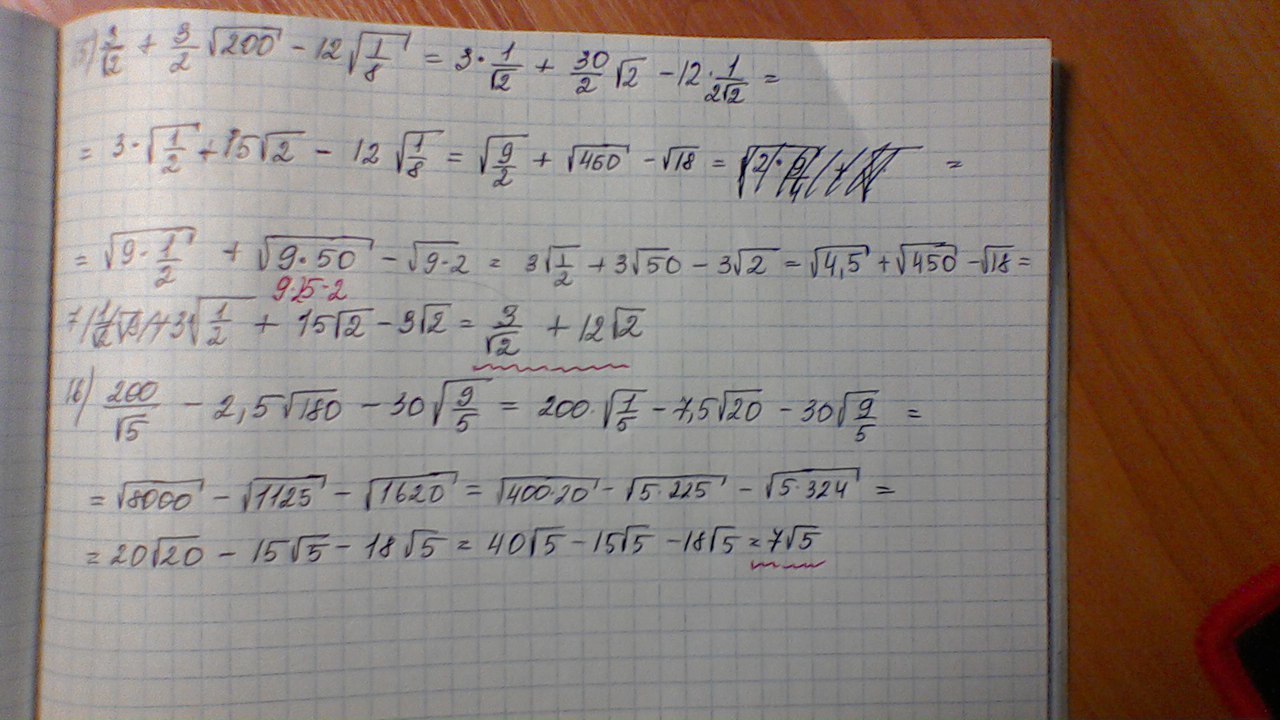 5) 3/√2 + 3/2 √200 - 12√(1/8) = 3·1/√2 + 30/2 √2 - 12·1/(2√2) =
= 3·√(1/2) + 15√2 - 12√(1/8) = √(9/2) + √450 - √18 = =
= √(9·1/2) + √(9·50) - √(9·2) = 3√(1/2) + 3√50 - 3√2 = √4,5 + √450 - √18 =
9·25·2
3√(1/2) + 15√2 - 3√2 = 3/√2 + 12√2
16) 200/√5 - 2,5√180 - 30√(9/5) = 200·√(1/5) - 7,5√20 - 30√(9/5) =
= √8000 - √1125 - √1620 = √(400·20) - √(5·225) - √(5·324) =
= 20√20 - 15√5 - 18√5 = 40√5 - 15√5 - 18√5 = 7√5